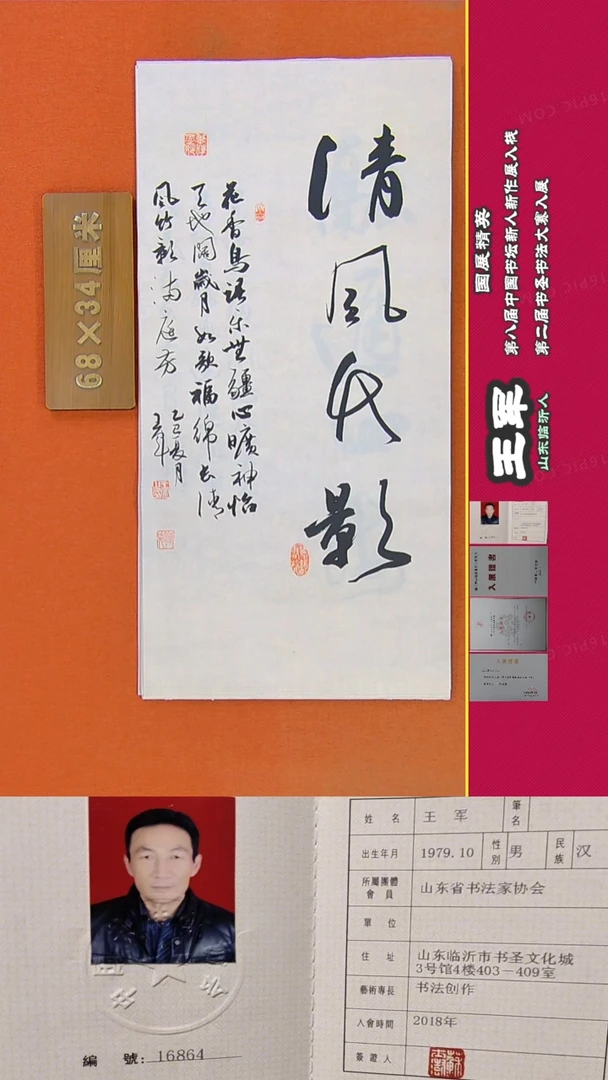 清风竹影
花香鸟语乐無疆心曠神怡
天地阔歲月如歌福綿长清
风竹影满庭芳
乙巳夏月
王军
68×34厘米
国展精英
第八届中国书坛新人新作展入展
第二届书圣书法大赛入展
王军
山东临沂人
姓名 王军 筆名
出生年月 1979.10 性别 男 民族 汉
所屬團體會員 山东省书法家协会
單位
住址 山东临沂市书圣文化城
3号馆4楼403－409室
藝術專長 书法创作
入會時間 2018年
簽證人
編號: 16864